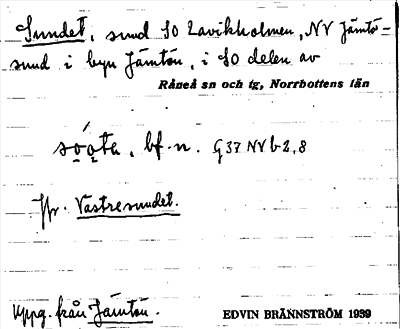 Sundet, sund SO Lavikholmen, NV Jämtö-
sund i byn Jämtön, i SO delen av
Råneå sn och tg, Norrbottens län
bf. n. G 37 NV b 2, 8
Jfr. Västresundet.
Uppg. från Jämtön.
EDVIN BRÄNNSTRÖM 1939